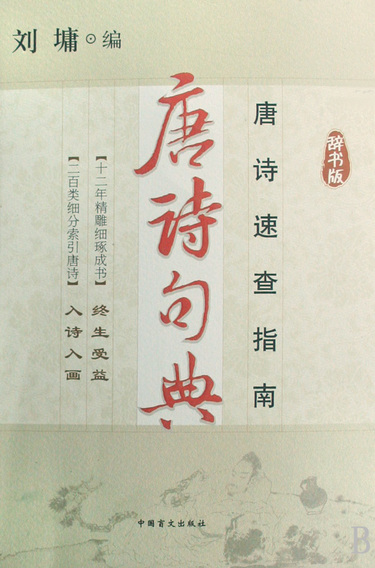 刘墉⊙编
唐诗速查指南
辞书版
唐诗句典
【十二年精雕细琢成书】终生受益
【二百类细分索引唐诗】入诗入画
中国盲文出版社
B